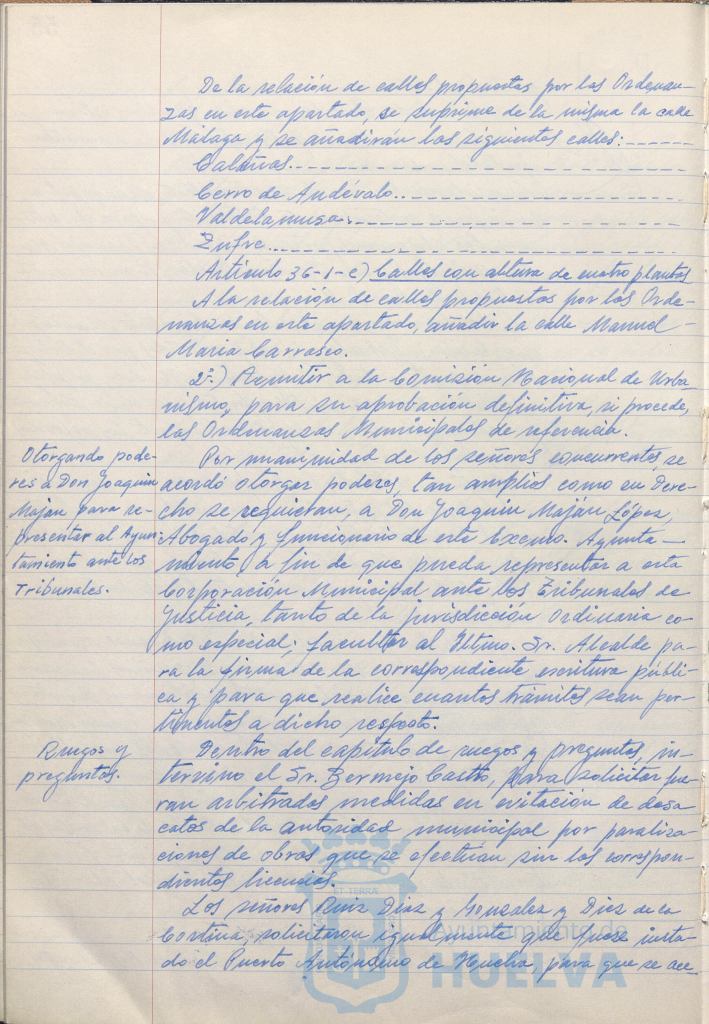 De la relación de calles propuestas por las Ordenan-
zas en este apartado, se suprime de la misma la calle
Málaga y se añadirán las siguientes calles:
Calañas.
Cerro de Andévalo.
Valdelamusa.
Zufre.
Artículo 36-1-c) Calles con altura de cuatro plantas
A la relación de calles propuestas por las Orde-
nanzas en este apartado, añadir la calle Manuel
María Carrasco.
2º.) Remitir a la Comisión Nacional de Urba-
nismo, para su aprobación definitiva, si procede,
las Ordenanzas Municipales de referencia.
Otorgando pode-
res a Don Joaquín
Maján para re-
presentar al Ayun-
tamiento ante los
Tribunales.
Por unanimidad de los señores concurrentes, se
acordó otorgar poderes, tan amplios como en Dere-
cho se requieran, a Don Joaquín Maján López,
Abogado y funcionario de este Excmo. Ayunta-
miento, a fin de que pueda representar a esta
Corporación Municipal ante los Tribunales de
Justicia, tanto de la jurisdicción ordinaria co-
mo especial; facultar al Iltmo. Sr. Alcalde pa-
ra la firma de la correspondiente escritura públi-
ca y para que realice cuantos trámites sean per-
tinentes a dicho respecto.
Ruegos y
preguntas.
Dentro del capítulo de ruegos y preguntas, in-
tervino el Sr. Bermejo Castro, para solicitar fue-
ran arbitradas medidas en evitación de desa-
catos de la autoridad municipal por paraliza-
ciones de obras que se efectúan sin las correspon-
dientes licencias.
Los señores Ruiz Díaz y González y Díez de la
Cortina, solicitaron igualmente que fuese insta-
do el Puerto Autónomo de Huelva, para que se ace
Ayuntamiento de
HUELVA